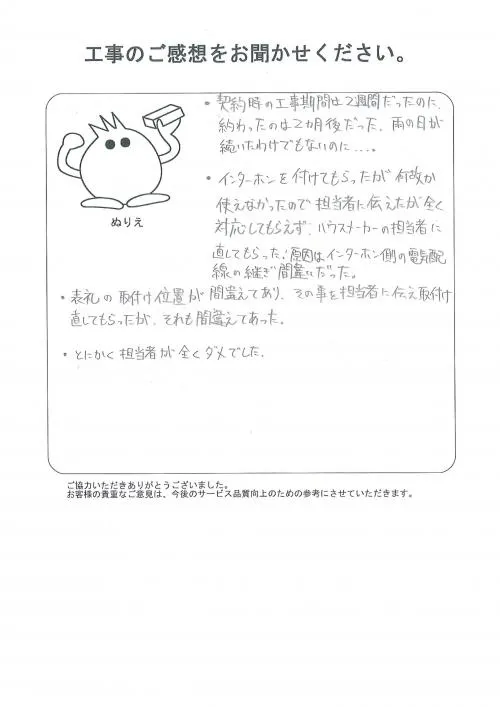 工事のご感想をお聞かせください。
・契約時の工事期間は2週間だったのに、
終わったのは2カ月後だった。雨の日が
続いたわけでもないのに…。
・インターホンを付けてもらったが何故か
使えなかったので担当者に伝えたが全く
対応してもらえず、ハウスメーカーの担当者に
直してもらった!原因はインターホン側の電気配
線の継ぎ間違いだった。
ぬりえ
・表札の取付け位置が間違えてあり、その事を担当者に伝え取付け
直してもらったが、それも間違えてあった。
・とにかく担当者が全くダメでした。
ご協力いただきありがとうございました。
お客様の貴重なご意見は、今後のサービス品質向上のための参考にさせていただきます。